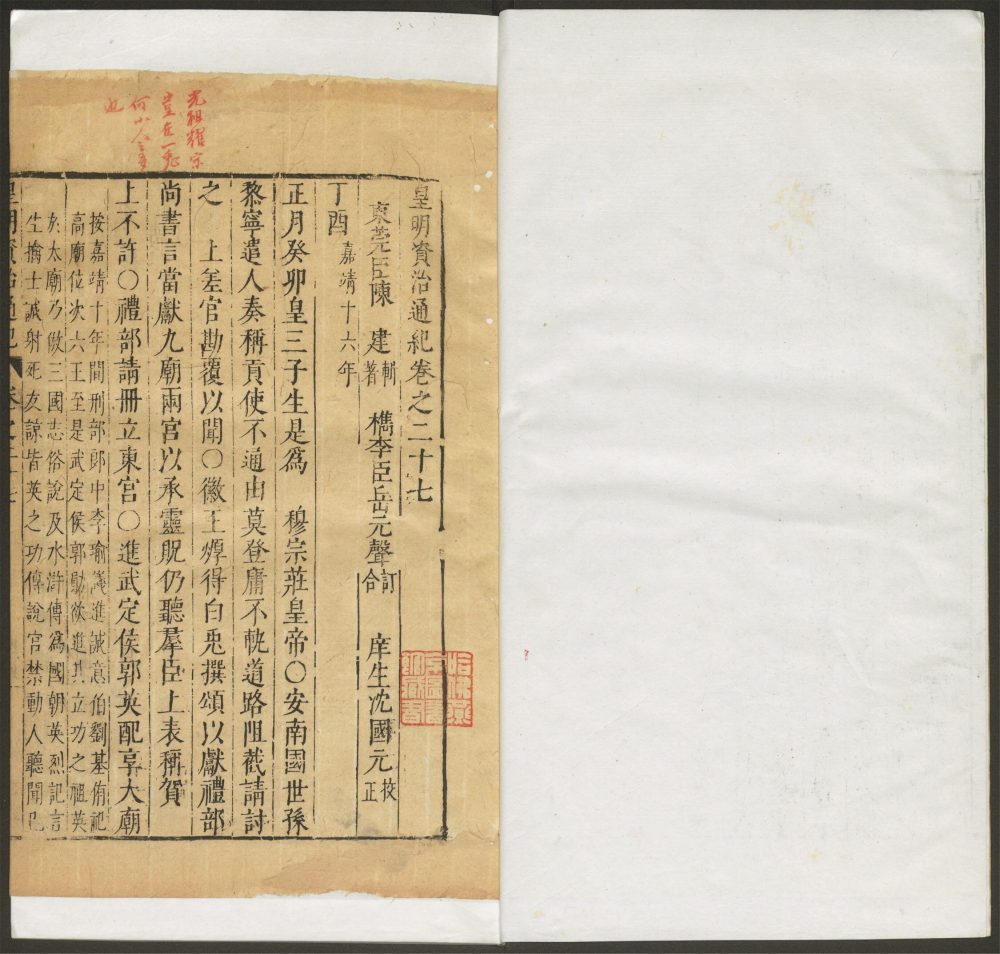 皇明資治通紀卷之二十七
東莞臣陳　建輯著　檇李臣岳元聲訂合　庠生沈國元挍正
丁酉嘉靖十六年
正月癸卯皇三子生是爲　穆宗莊皇帝○安南國世孫
黎寧遣人奏稱貢使不通由莫登庸不軌道路阻截請討
之　上差官勘覆以聞○徽王厚得白兎撰頌以獻禮部
尚書言當獻九廟兩宮以承靈貺仍聽羣臣上表稱賀
上不許○禮部請冊立東宮○進武定侯郭英配享大廟
按嘉靖十年間刑部郎中李瑜議進誠意伯劉基侑祀
高廟位次六王至是武定侯郭勛欲進其立功之祖英
於太廟乃倣三國志俗說及水滸傳爲國朝英烈記言
生擒士誠射死友諒皆英之功傳說宮禁動人聽聞已
皇明資治通紀　卷之二十七
光祖耀宗
豈在一死
何小人之多
也